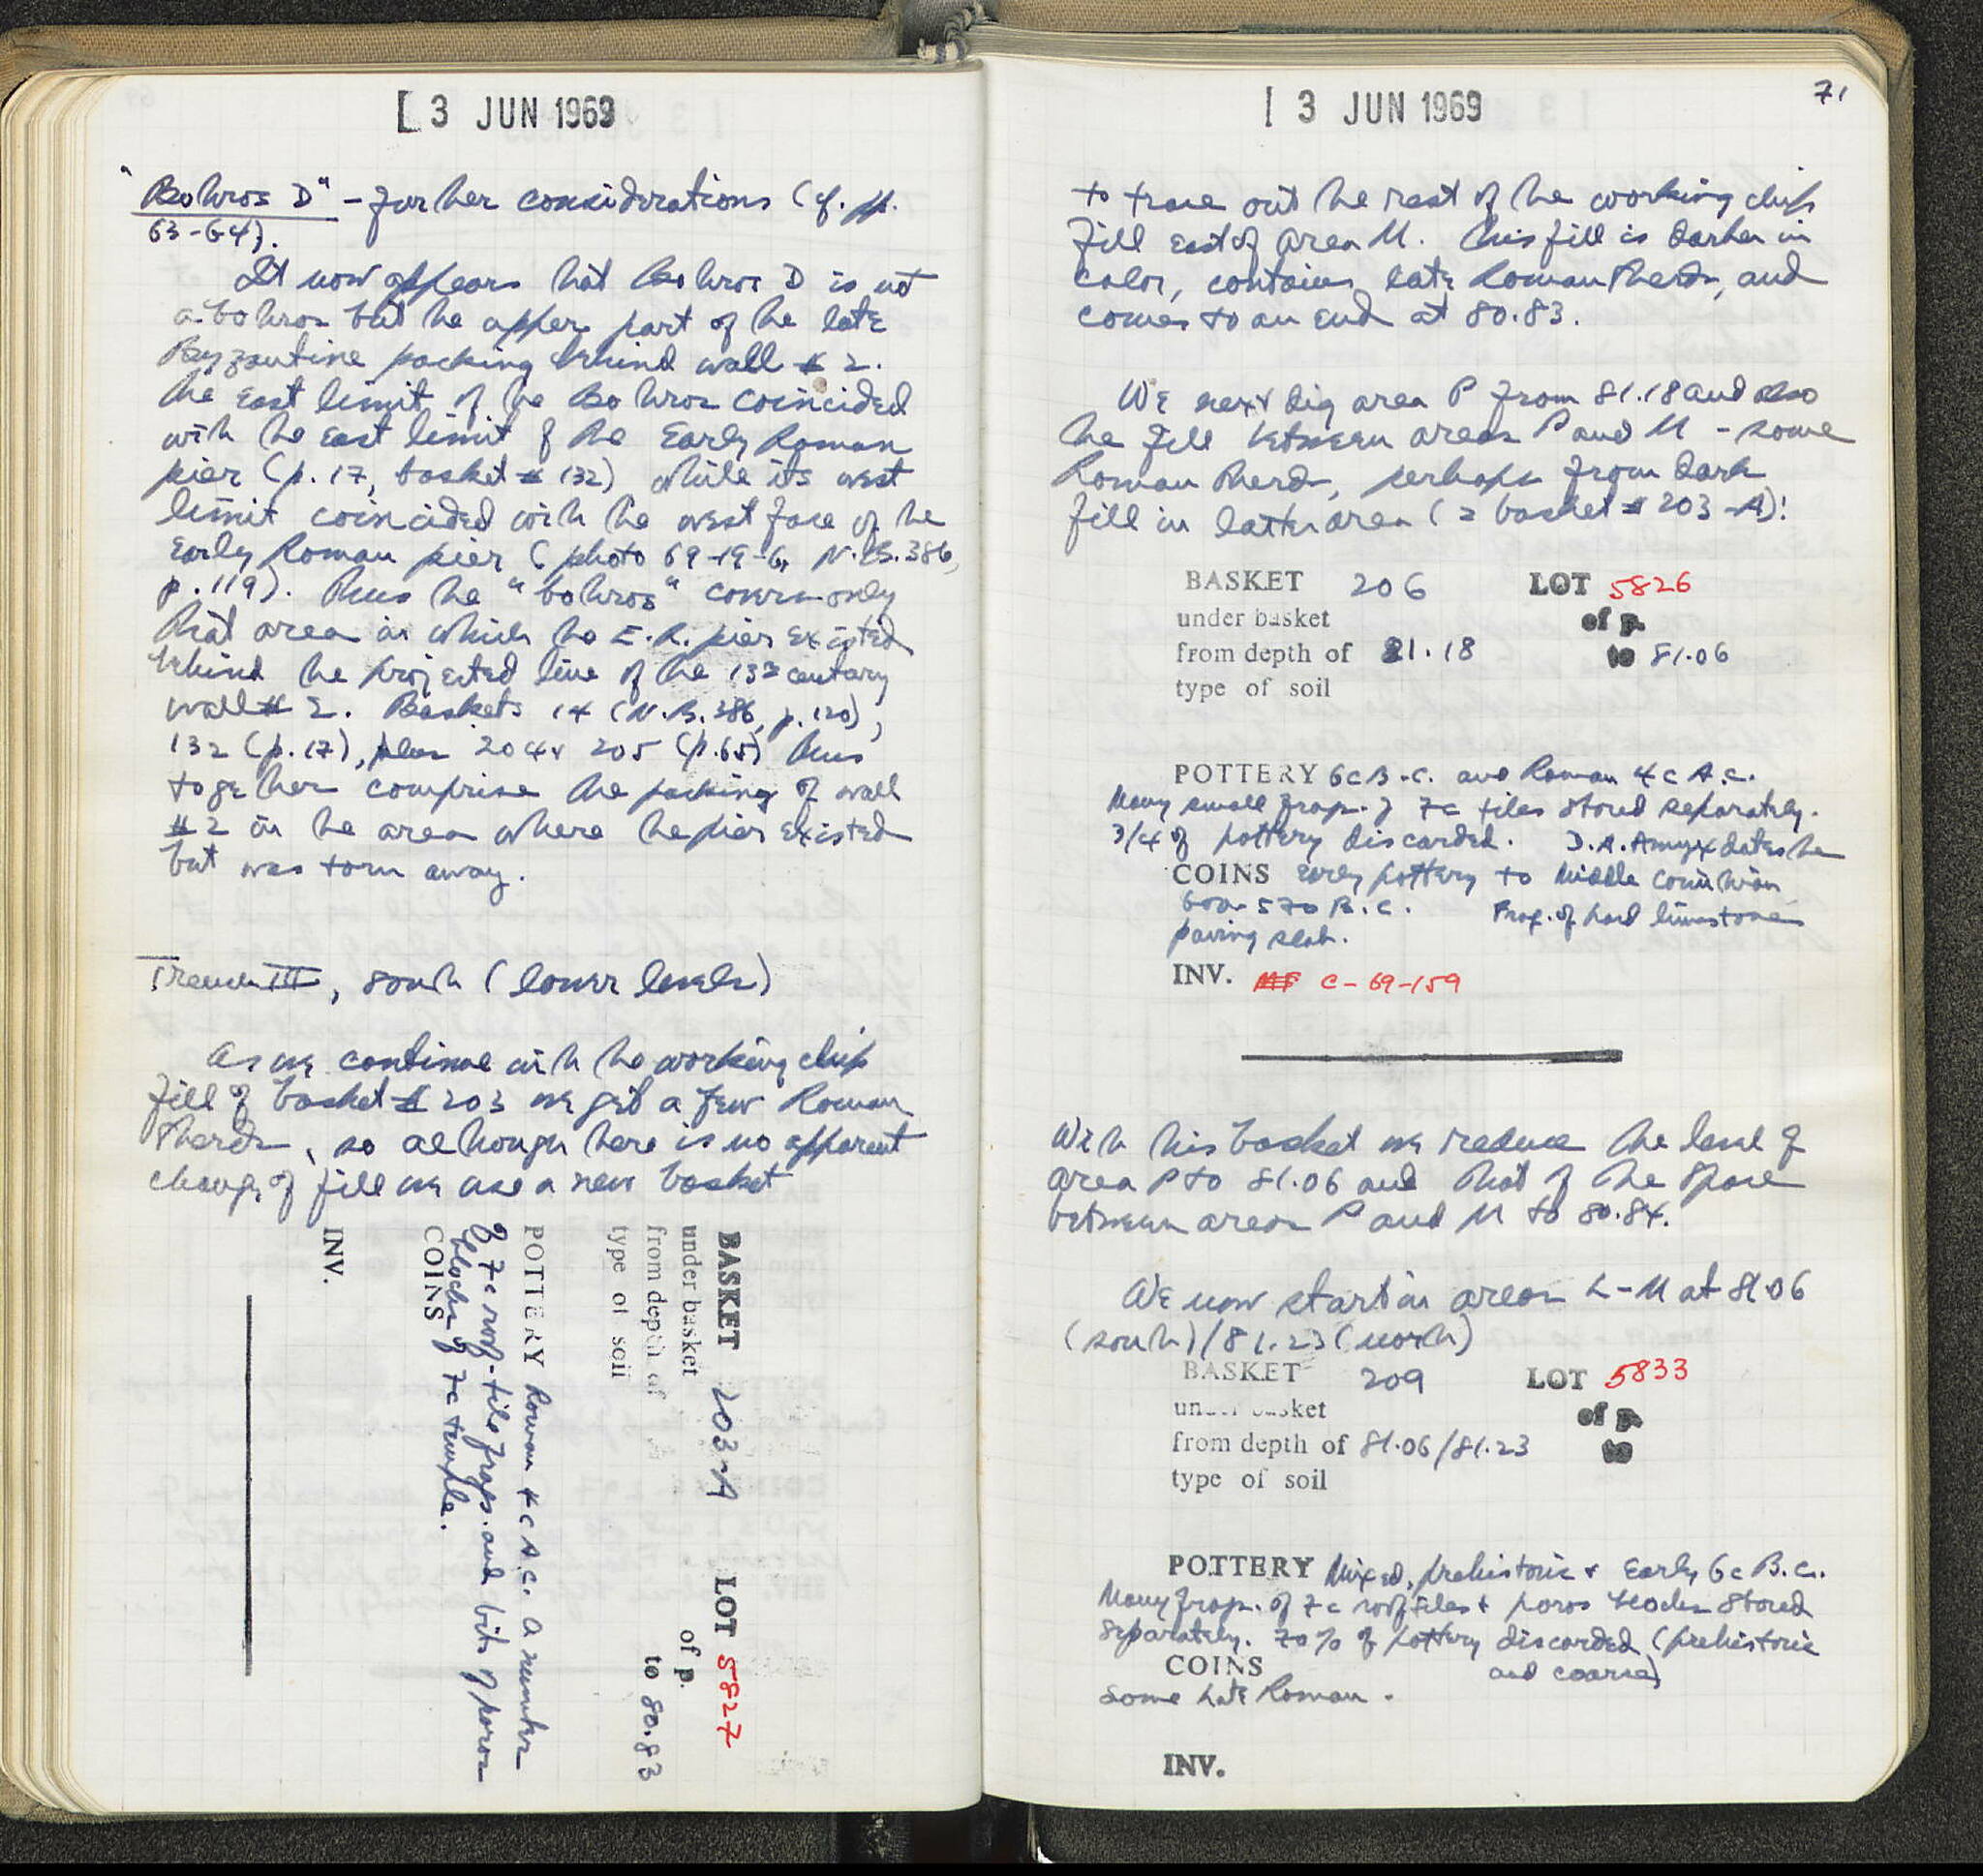 [ 3 JUN 1969
"Bothros D" - further considerations (cf. pp.
63-64).
It now appears that Bothros D is not
a bothros but the upper part of the late
Byzantine packing behind wall # 2.
The East limit of the Bothros coincided
with the East limit of the Early Roman
pier (p. 17, basket # 132) while its west
limit coincided with the west face of the
Early Roman pier (photo 69-19-6, N.B. 386,
p. 119). Thus the "bothros" covers only
that area in which the E.R. pier existed
behind the projected line of the 13th century
wall # 2. Baskets 14 (N.B. 386, p. 120),
132 (p. 17), plus 204 & 205 (p. 65) thus
together comprise the packing of wall
# 2 in the area where the pier existed
but was torn away.
Trench III, south (lower levels)
As we continue with the working chip
fill of basket # 203 we get a few Roman
sherds, so although there is no apparent
change of fill we use a new basket
BASKET 203-A LOT 5827
under basket of p.
from depth of to 80.83
type of soil
POTTERY Roman 4c A.C. A number
of 7c roof-tile frags. and bits of poros
blocks of 7c temple.
COINS
INV.
71
[ 3 JUN 1969
to trace out the rest of the working chip
fill east of area M. This fill is darker in
color, contains late Roman sherds, and
comes to an end at 80.83.
We next dig area P from 81.18 and also
the fill between areas P and M - some
Roman sherds, perhaps from dark
fill in latter area (= basket # 203-A)!
BASKET 206 LOT 5826
under basket of p.
from depth of 81.18 to 81.06
type of soil
POTTERY 6c B.C. and Roman 4c A.C.
Many small frags. of 7c tiles stored separately.
3/4 of pottery discarded. D.A. Amyx dates the
COINS early pottery to Middle Corinthian
570 B.C. Frag. of hard limestone
paving slab.
INV. C-69-159
With this basket we reduce the level of
area P to 81.06 and that of the space
between areas P and M to 80.84.
We now start in areas L-M at 81.06
(south)/81.23 (north)
BASKET 209 LOT 5833
under basket of p.
from depth of 81.06/81.23 to
type of soil
POTTERY Mixed, prehistoric & Early 6c B.C.
Many frags. of 7c roof tiles & poros blocks stored
separately. 70% of pottery discarded (prehistoric
and coarse)
COINS
Some Late Roman.
INV.